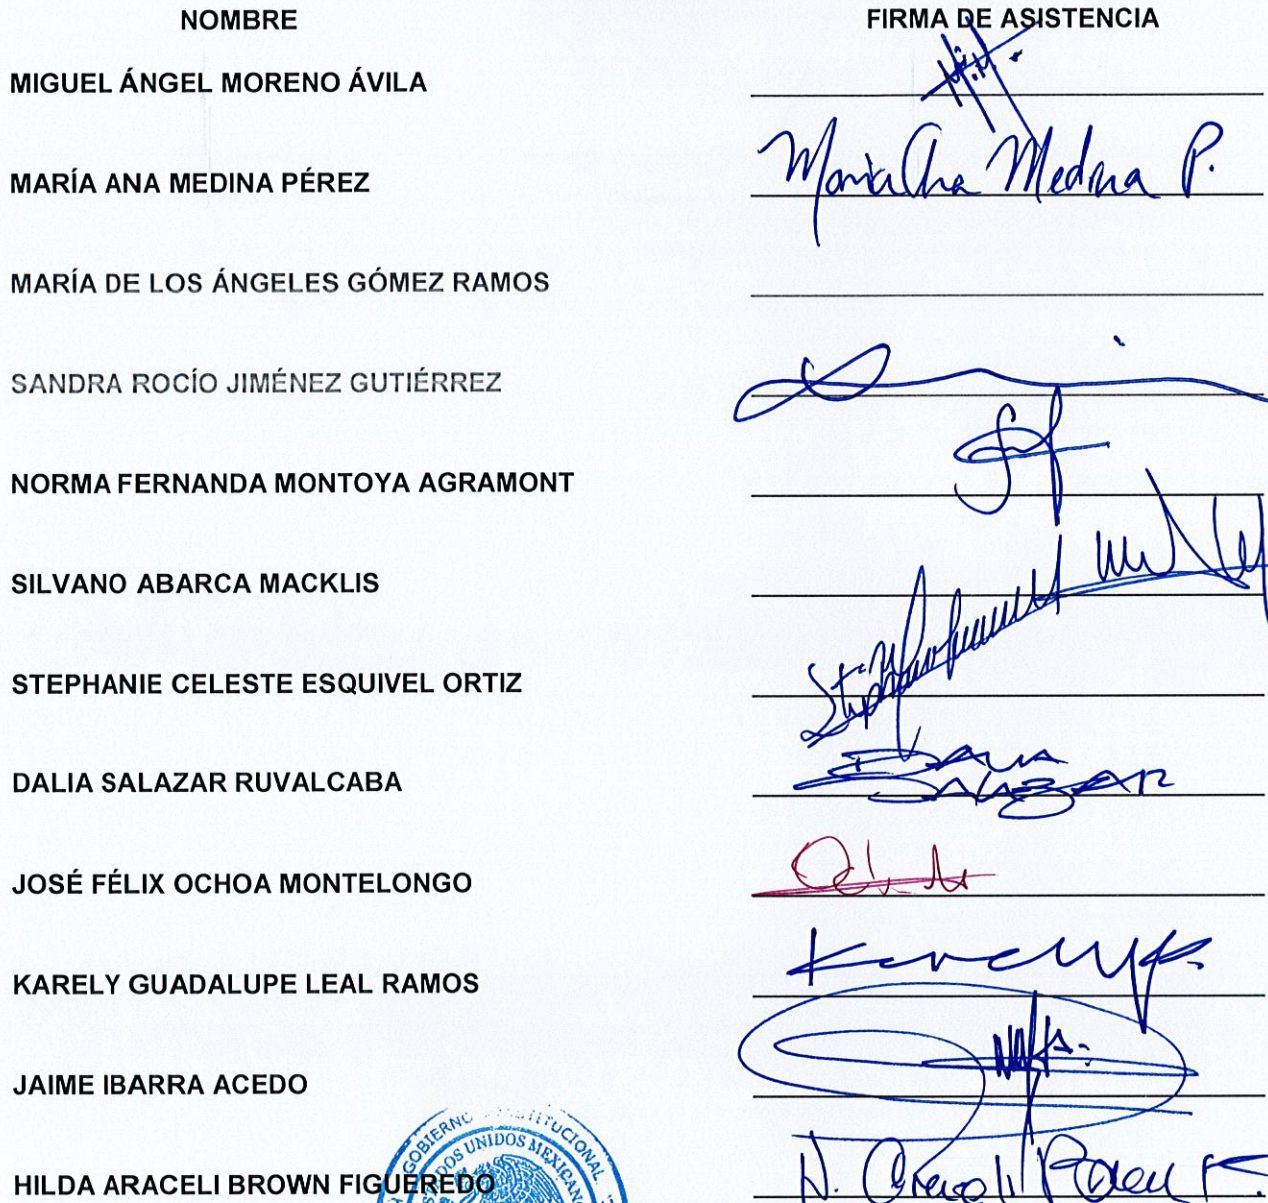 NOMBRE FIRMA DE ASISTENCIA
MIGUEL ÁNGEL MORENO ÁVILA
MARÍA ANA MEDINA PÉREZ María Ana Medina P.
MARÍA DE LOS ÁNGELES GÓMEZ RAMOS
SANDRA ROCÍO JIMÉNEZ GUTIÉRREZ
NORMA FERNANDA MONTOYA AGRAMONT
SILVANO ABARCA MACKLIS
STEPHANIE CELESTE ESQUIVEL ORTIZ
DALIA SALAZAR RUVALCABA DALIA
SALAZAR
JOSÉ FÉLIX OCHOA MONTELONGO
KARELY GUADALUPE LEAL RAMOS
JAIME IBARRA ACEDO
GOBIERNO
UNIDOS MEXICANO
HILDA ARACELI BROWN FIGUEREDO H. Araceli Brown F.